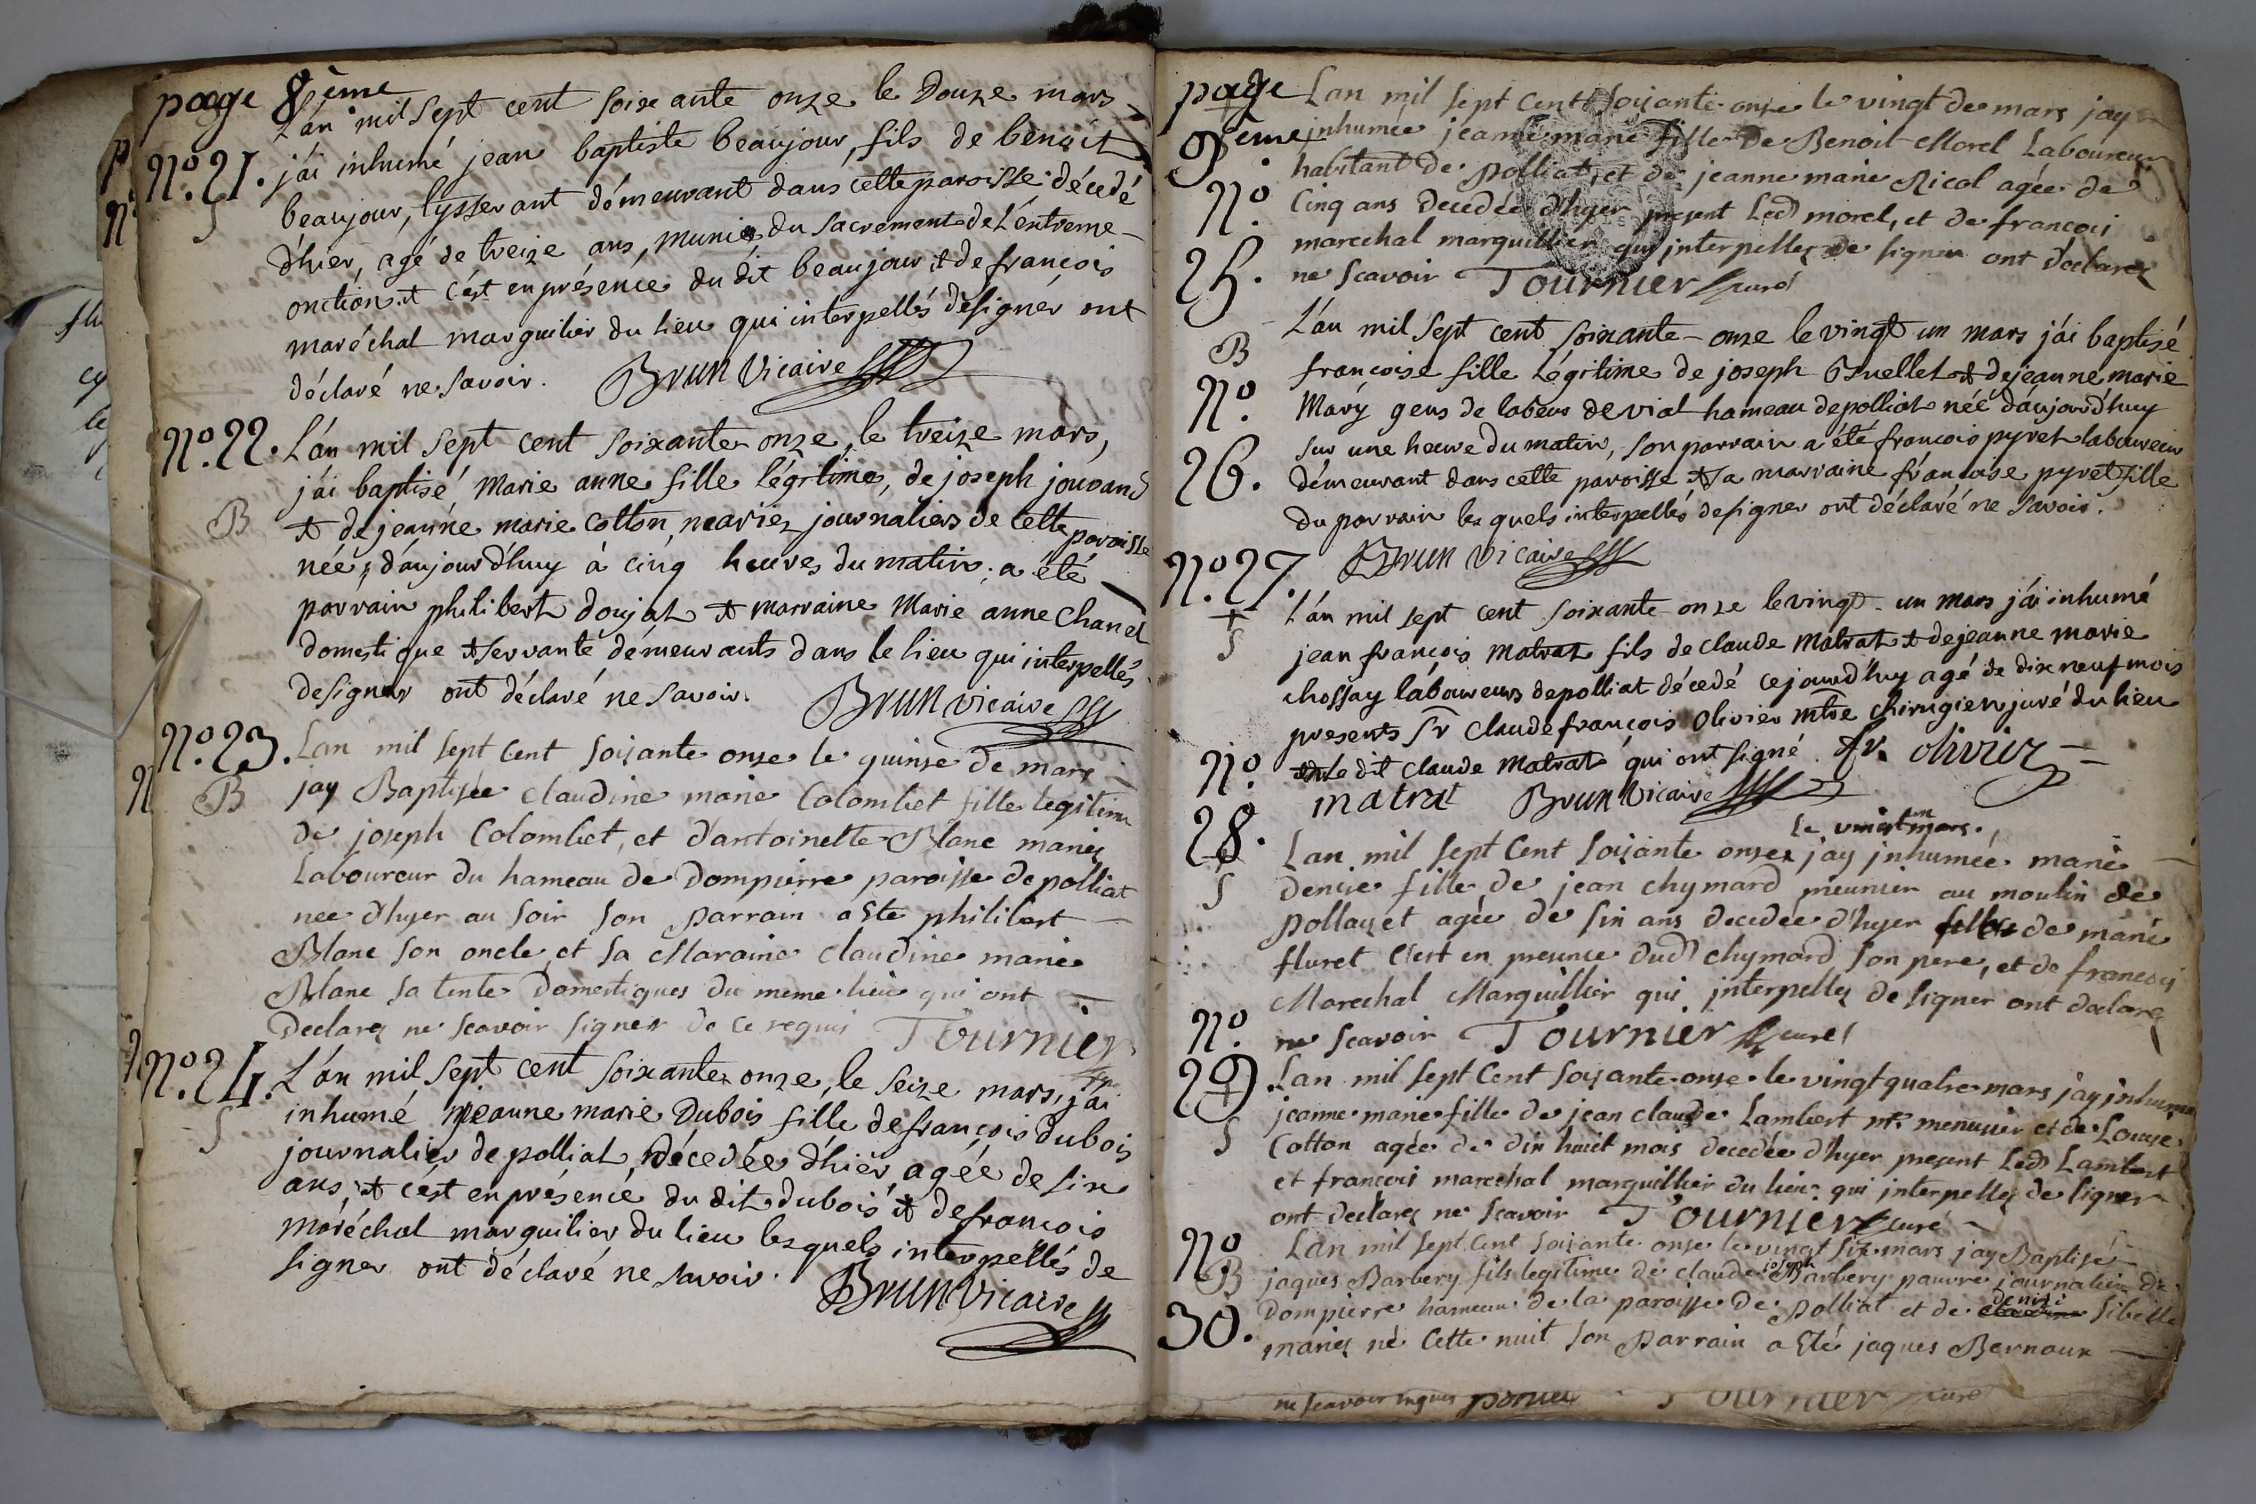 page 8ème
L'án mil sept cent soixante onze le douze mars
N°. 21. j'ái inhumé jean baptiste beaujour, fils de benoit
S beaujour, tysserant démeurant dans cette paroisse décedé
d'hier, agé de treize ans, munie du sacrement de L'éntreme
onction et c'ést en présence du dit beaujour et de françois
maréchal marguilier du lieu qui interpellés de signér ont
déclaré ne savoir. Brun vicaire
N°. 22. L'án mil sept cent soixante onze, le treize mars,
j'ái baptisé marie anne fille légitime, de joseph jouvand
B et de jeanne marie cotton, mariez journaliers de cette paroisse
née d'áujourd'huy à cinq heures du matin, a été
parrain philibert doujat et marraine Marie anne Chanel
domestique et servante démeurants dans le lieu qui interpellés
de signer ont déclaré ne savoir. Brun vicaire
N°. 23. Lan mil sept cent soixante onze le quinze de mars
B jay Baptisée claudine marie Colombet fille legitime
de joseph Colombet, et d'antoinette Blanc mariez
Laboureur du hameau de Dompierre paroisse de polliat
nee d'hyer au soir son parrain a Ete philibert
Blanc son oncle, et sa Maraine claudine marie
Blanc sa tente Domestiques du meme lieu qui ont
Declarez ne scavoir signer de ce requis Tournier
N°. 24. L'án mil sept cent soixante onze, le seize mars, j'ái
S inhumé jeanne marie Dubois fille de françois dubois
journalier de polliat, décedée d'hièr, agée de six
ans, et c'est en présence du dit dubois et de françois
maréchal marguilier du lieu lesquels interpellés de
signer ont déclaré ne savoir. Brun vicaire
page 9eme
Lan mil sept cent soixante onze le vingt de mars jay
inhumée jeanne marie fille de Benoit Morel Laboureur
habitant de polliat, et de jeanne marie Nicol agée de
N° 25. Cinq ans decedée d'hyer present Led morel, et de francois
marechal marguillier qui interpellez de signer ont declarez
ne scavoir Tournier curé
L'án mil sept cent soixante-onze le vingt un mars j'ái baptisé
B françoise fille légitime de joseph Gruellet et de jeanne marie
N°. 26. Mary gens de labeur de vial hameau de polliat née d'áujourd'huy
sur une heure du matin, son parrain a été françois pyret laboureur
démeurant dans cette paroisse et sa marraine françoise pyret fille
du parrain lesquels interpellés de signer ont déclaré ne savoir.
Brun vicaire
N°. 27. L'án mil sept cent soixante onze le vingt-un mars j'ái inhumé
S jean françois matrat fils de claude matrat et de jeanne marie
chossay láboureurs de polliat décedé ce jourd'huy agé de dix neuf mois
presents Sr claude françois Olivier mtre chirugien juré du lieu
et le dit claude matrat qui ont signé. fr. olivier
matrat Brun vicaire
le vingt mars.
N° 28. Lan mil sept cent soixante onze jay inhumée marie
S denise fille de jean chymard meunier au moulin de
pollayet agée de six ans decedée d'hyer fille de marie
fluret C'est en presence dud chymard son pere, et de francois
Marechal Marguillier qui interpellez de signer ont declarez
ne scavoir Tournier curé
N° 29. Lan mil sept cent soixante onze le vingt quatre mars jay inhumée
jeanne marie fille de jean claude Lambert mr. menuier et de Louyse
S Cotton agée de dix huict mois decedée d'hyer present Led Lambert
et francois marechal marguillier du lieu qui interpellez de signer
ont declarez ne scavoir Tournier curé
N° 30. Lan mil sept cent soixante onze le vingt six mars jay Baptisé
B jaques Barbery fils legitime de claude joseph Barbery pauvre journalier de
Dompierre hameau de la paroisse de polliat et de denise Sibelle
mariez né Cette nuit son Parrain a Eté jaques Bernoux
ne scavoir Tournier curé